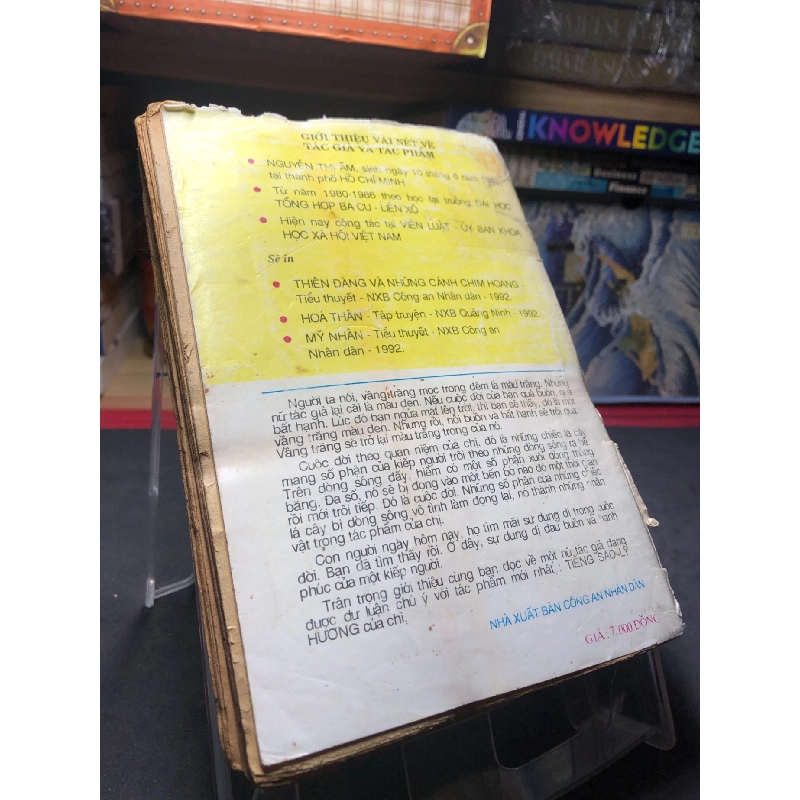 GIỚI THIỆU VÀI NÉT VỀ
TÁC GIẢ VÀ TÁC PHẨM
NGUYỄN THỊ ẤM, sinh ngày 10 tháng 6 năm
tại thành phố HỒ CHÍ MINH
Từ năm 1980-1986 theo học tại trường ĐẠI HỌC
TỔNG HỢP BA CU - LIÊN XÔ
Hiện nay công tác tại VIỆN LUẬT - ỦY BAN KHOA
HỌC XÃ HỘI VIỆT NAM
Sẽ in
THIÊN ĐÀNG VÀ NHỮNG CÁNH CHIM HOANG
Tiểu thuyết - NXB Công an Nhân dân - 1992.
HOÁ THÂN - Tập truyện - NXB Quảng Ninh - 1992.
MỸ NHÂN - Tiểu thuyết - NXB Công an
Nhân dân - 1992.
Người ta nói, vầng trăng mọc trong đêm là màu trắng. Nhưng
nữ tác giả lại cãi là màu đen. Nếu cuộc đời của bạn quá buồn, quá
bất hạnh. Lúc đó bạn ngửa mặt lên trời, thì bạn sẽ thấy, đó là một
vầng trăng màu đen. Nhưng rồi, nỗi buồn và bất hạnh sẽ trôi qua.
Vầng trăng sẽ trở lại màu trắng trong của nó.
Cuộc đời theo quan niệm của chị, đó là những chiếc lá cây
mang số phận của kiếp người trôi theo những dòng sông ra bể.
Trên dòng sông đầy hiếm có một số phận xuôi dòng thẳng
băng. Đa số, nó sẽ bị dừng vào một bến bờ nào đó một thời gian
rồi mới trôi tiếp. Đó là cuộc đời. Những số phận của những chiếc
lá cây bị dòng sông vô tình làm đọng lại, nó thành những nhân
vật trong tác phẩm của chị.
Con người ngày hôm nay, họ tìm mãi sự dung dị trong cuộc
đời. Bạn đã tìm thấy rồi. Ở đây, sự dung dị đau buồn và hạnh
phúc của một kiếp người.
Trân trọng giới thiệu cùng bạn đọc về một nữ tác giả đang
được dư luận chú ý với tác phẩm mới nhất : TIẾNG SÁO LY
HƯƠNG của chị.
NHÀ XUẤT BẢN CÔNG AN NHÂN DÂN
GIÁ : 7.000 ĐỒNG
KNOWLEDGE
Business
Finance